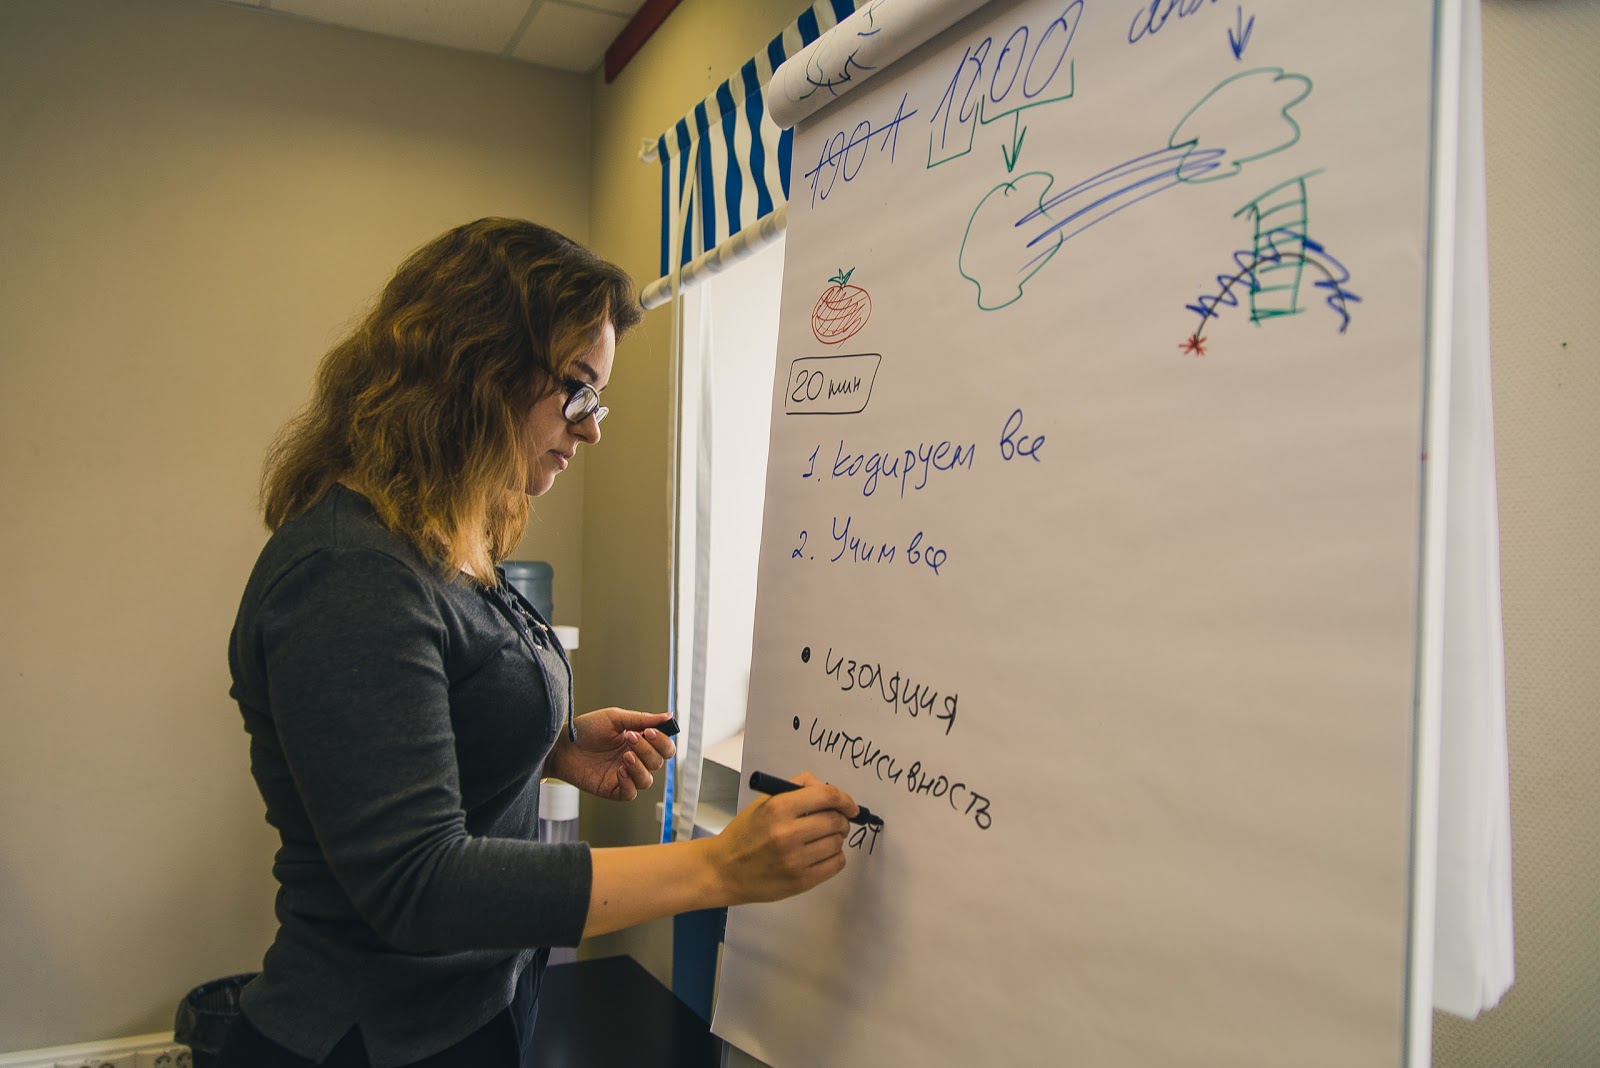 1800
20 мин
1. Кодируем все
2. Учим все
• изоляция
• интенсивность
ат